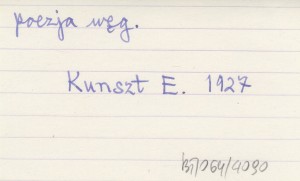 poezja węg.
Kunszt E. 1927
BT/064/4090